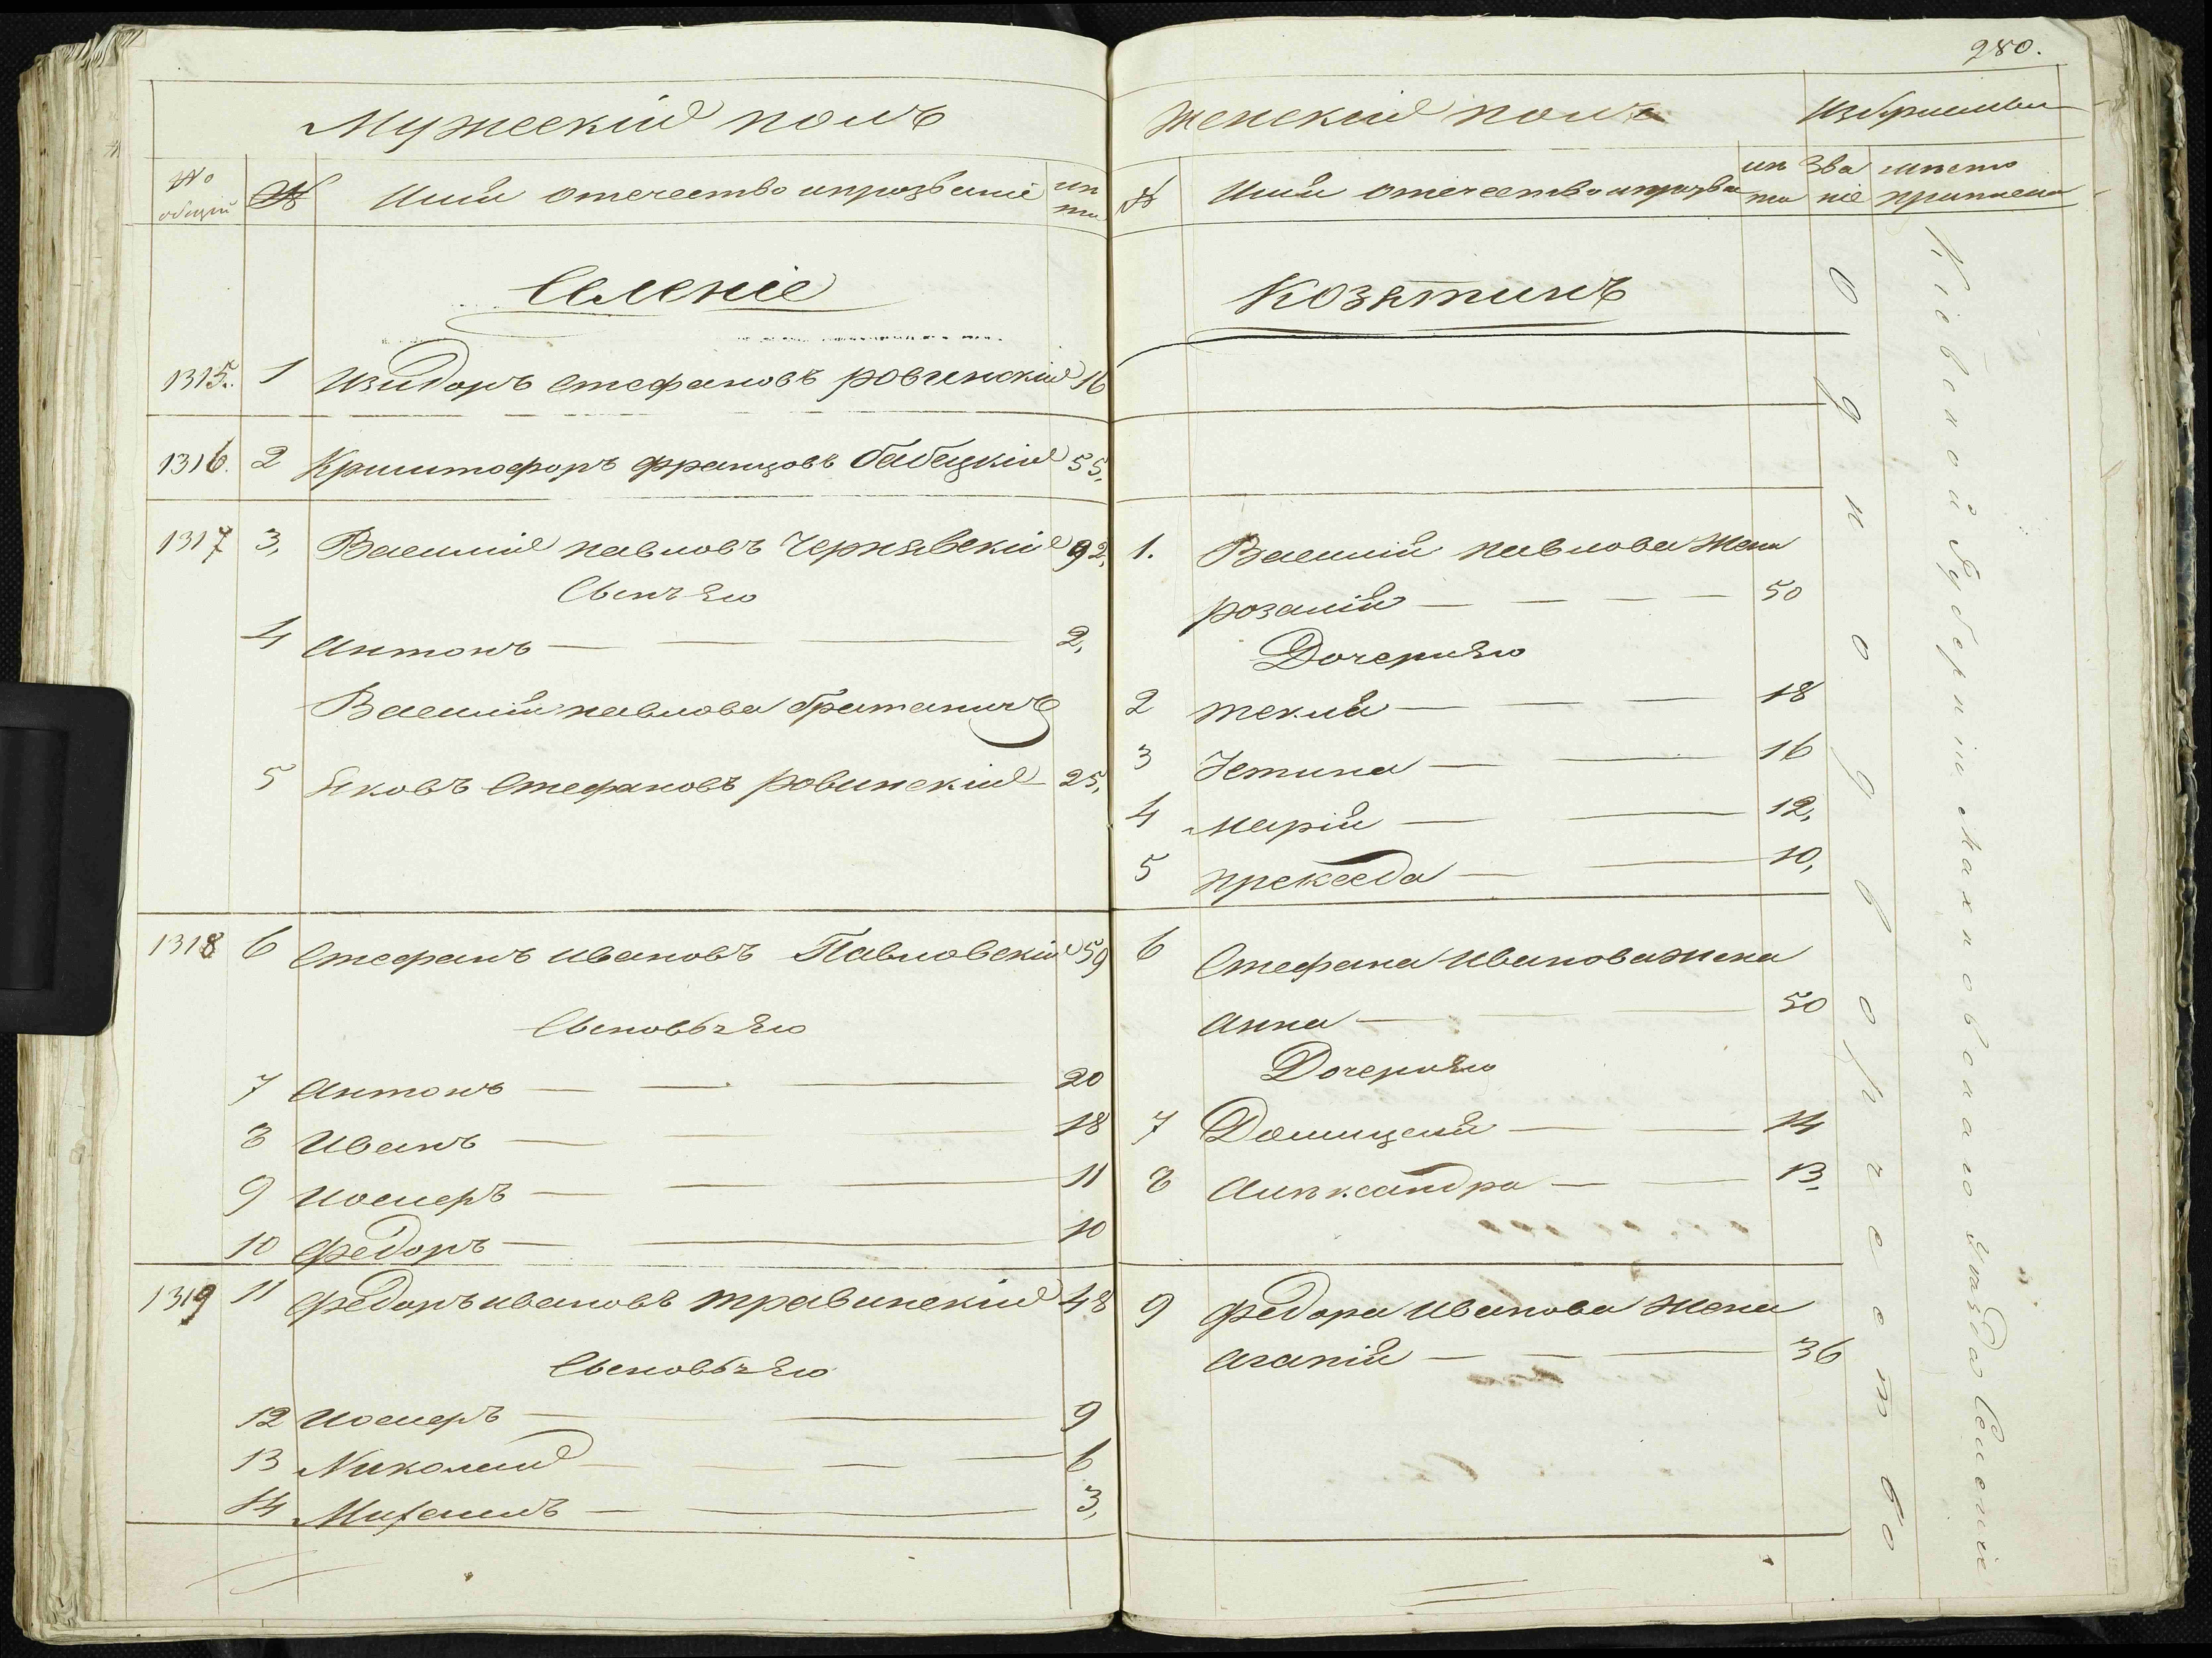 280.
Мужескій полъ
№ общій № Имя отечество и прозваніе лѣта
Селеніе
1315. 1 Изидоръ Стефановъ ровинскій 16
1316. 2 Криштофоръ францовъ бабацкій 55,
1317 3, Василій павловъ Чернявскій 92,
Сынъ Его
4 Антонъ — — 2,
Василія павлова братаничъ
5 Яковъ Стефановъ ровинскій 25,
1318 6 Стефанъ Ивановъ Павловскій 59
Сыновья Его
7 Антонъ — — 20
8 Иванъ — — 18
9 Иосифъ — — 11
10 федоръ — — 10
1319 11 федоръ ивановъ травинскій 48
Сыновья Его
12 Иосифъ — — 9
13 Николай — — 6
14 Михаилъ — — 3,
Женскій полъ
№ Имя отечество и прозва лѣта Званіе
Козятинъ
1. Василія павлова Жена
розалія — — — 50
Дочери Его
2 текля — — 18
3 Устина — — 16
4 Марія — — 12,
5 прекседа — — 10,
6 Стефана Иванова жена
Анна — — 50
Дочери Его
7 Домицеля — — 14
8 Александра — — 13,
9 федора Иванова Жена
Агапія — — 36
Однодворческаго
Кіевской Губерніи Махновскаго уѣзда Селеніи